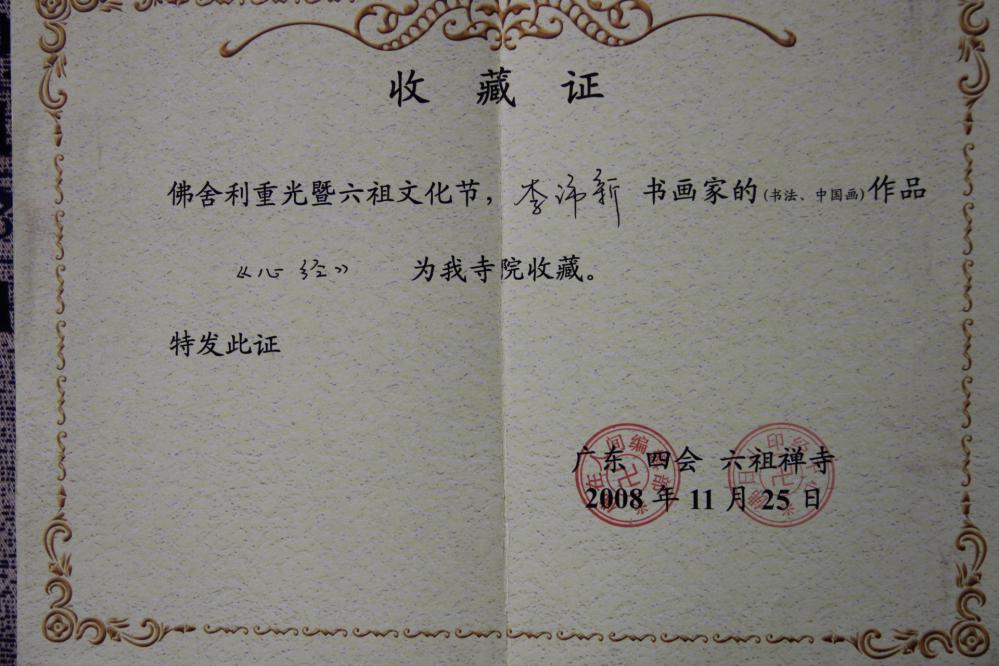 收藏证
佛舍利重光暨六祖文化节，李沛新 书画家的(书法、中国画)作品
《心经》 为我寺院收藏。
特发此证
广东 四会 六祖禅寺
2008 年 11 月 25 日